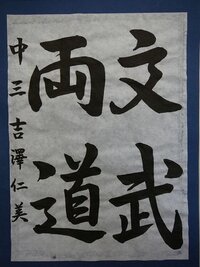 文武
両道
中三吉澤仁美